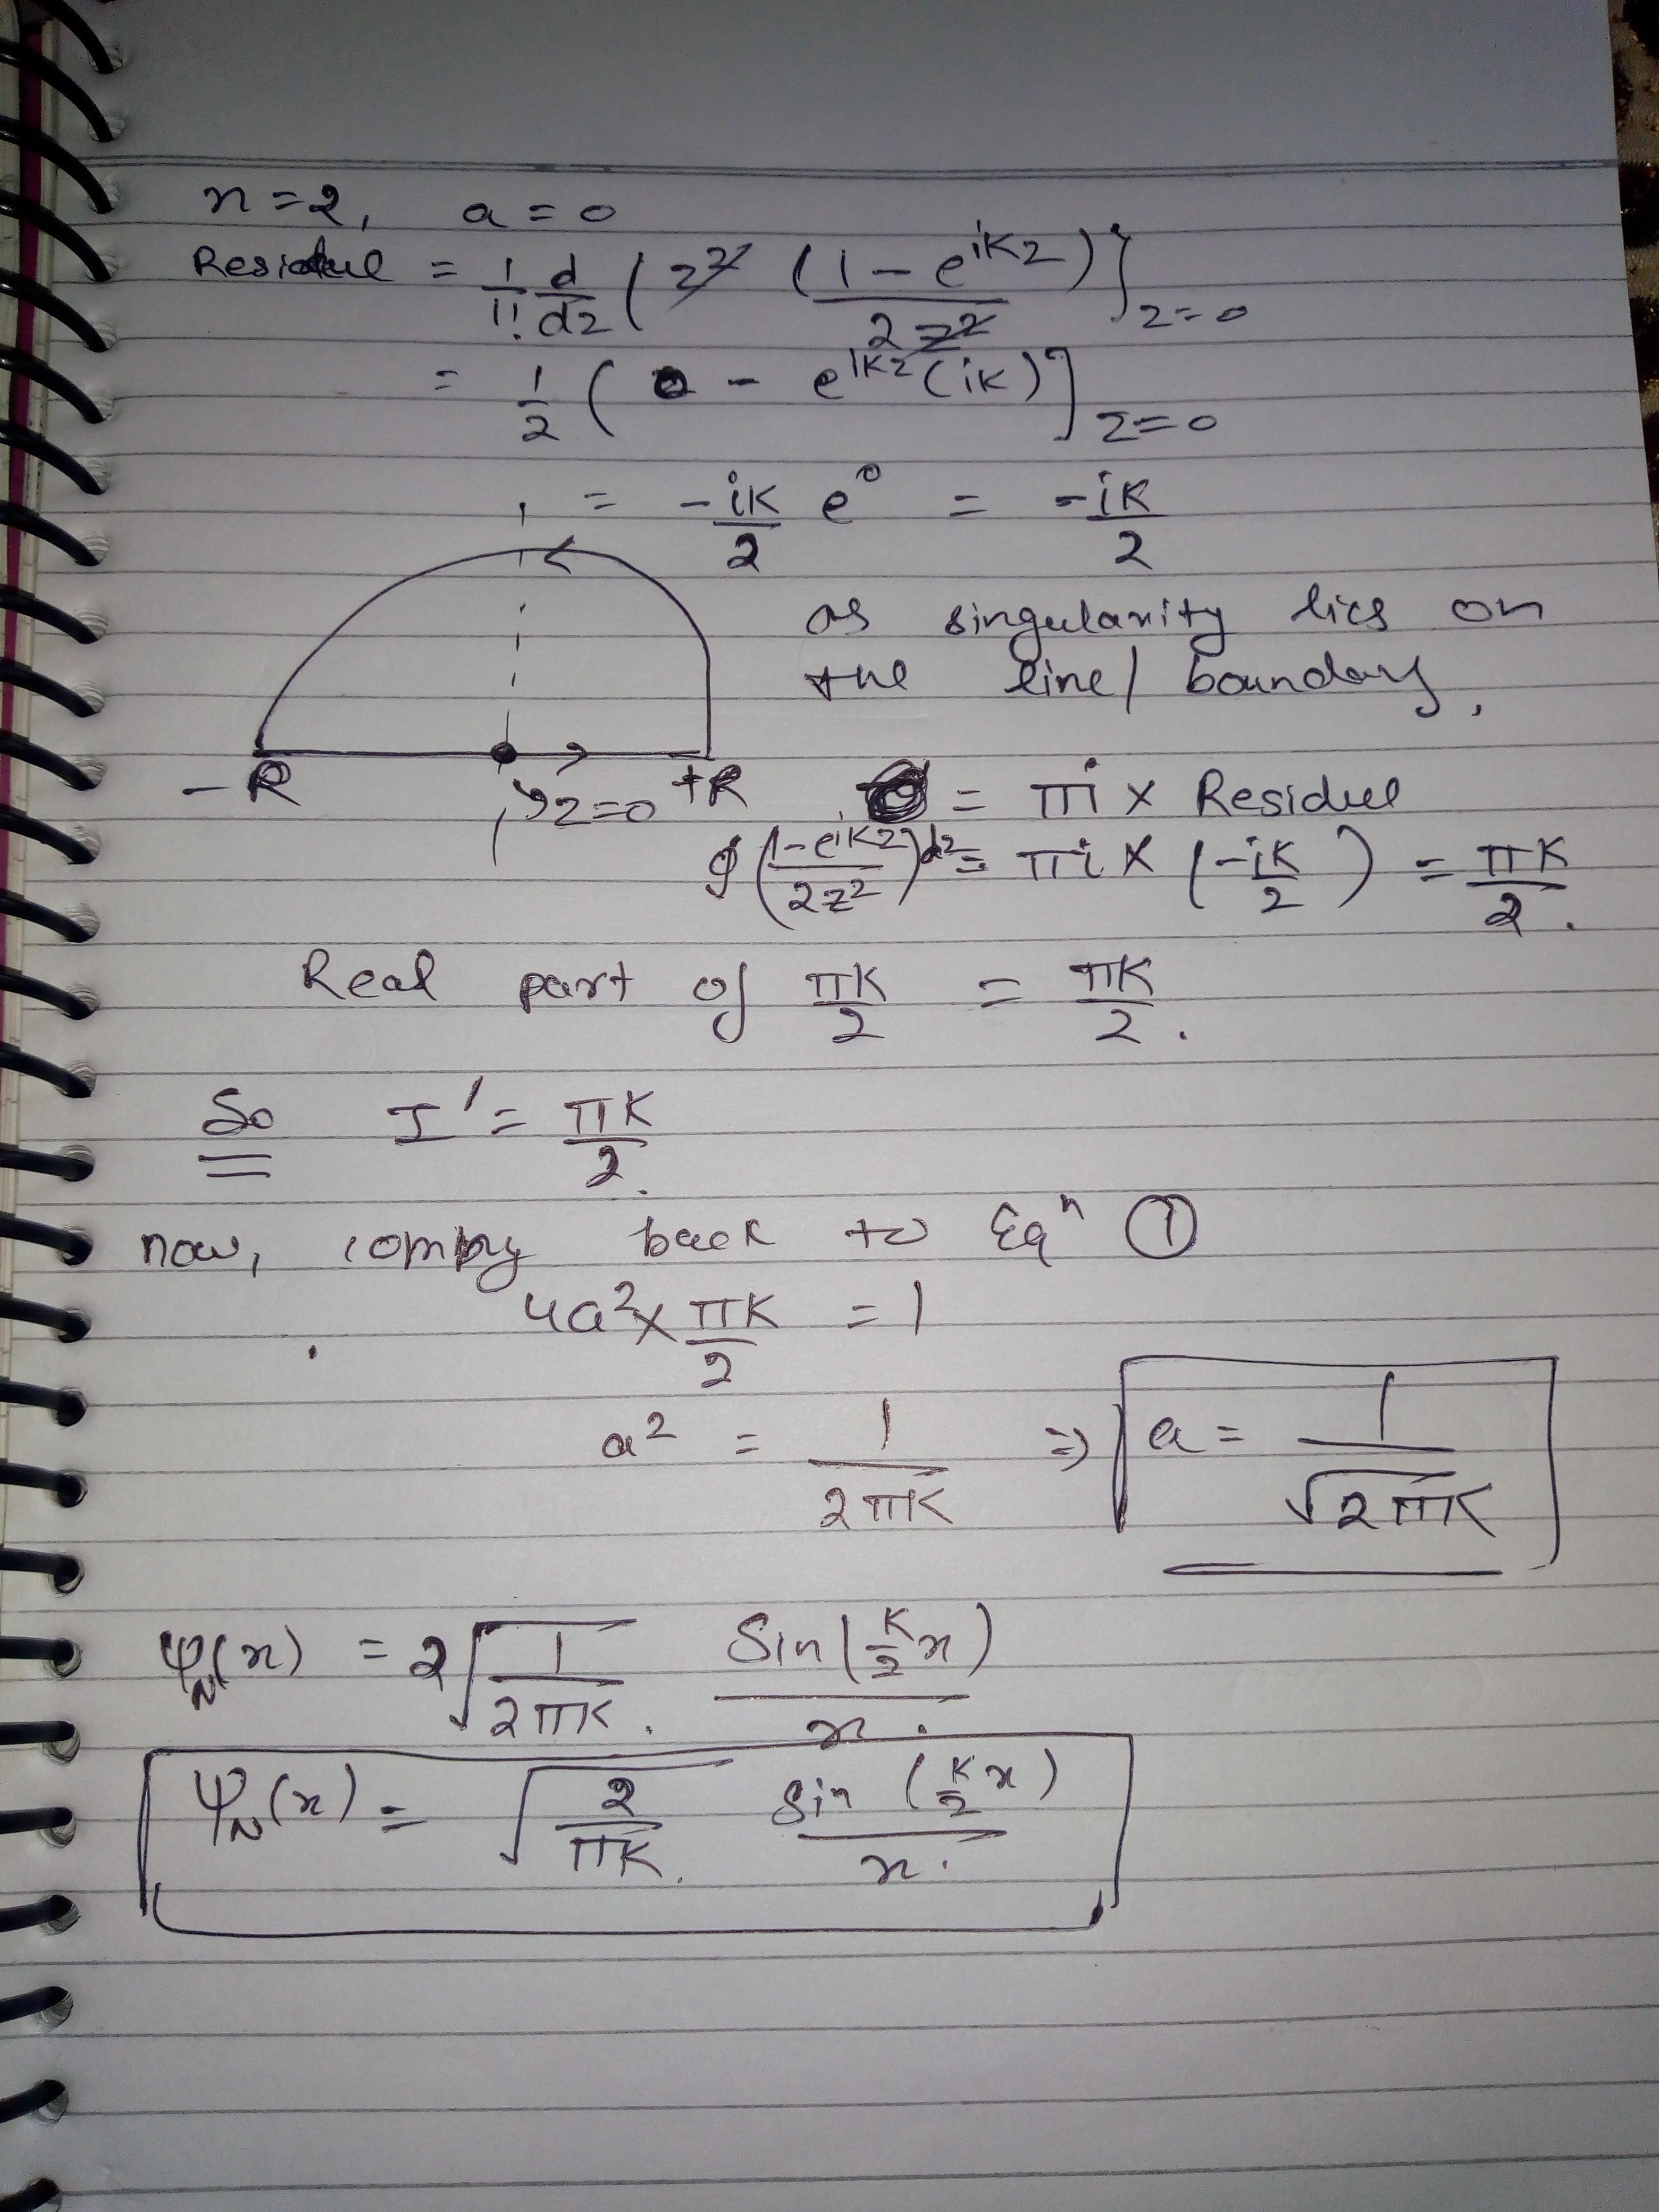 n=2, a=0
Residue = 1/1! d/dz ( z² (1 - e^{ikz}) / 2z² ]_{z=0}
= 1/2 ( 0 - e^{ikz} (ik) ]_{z=0}
= -ik/2 e⁰ = -ik/2
as singularity lies on
the line/ boundary,
-R z=0 +R
= πi × Residue
∮ ( 1-e^{ikz} / 2z² ) dz = πi × ( -ik/2 ) = πk/2 .
Real part of πk/2 = πk/2 .
So I' = πk/2 .
now, back to Eqⁿ ①
4a² × πk/2 = 1
a² = 1/2πk ⇒ a = 1/√2πk
ψ_N(x) = 2 √1/2πk . Sin(k/2 x) / x .
ψ_N(x) = √2/πk . Sin (k/2 x) / x .